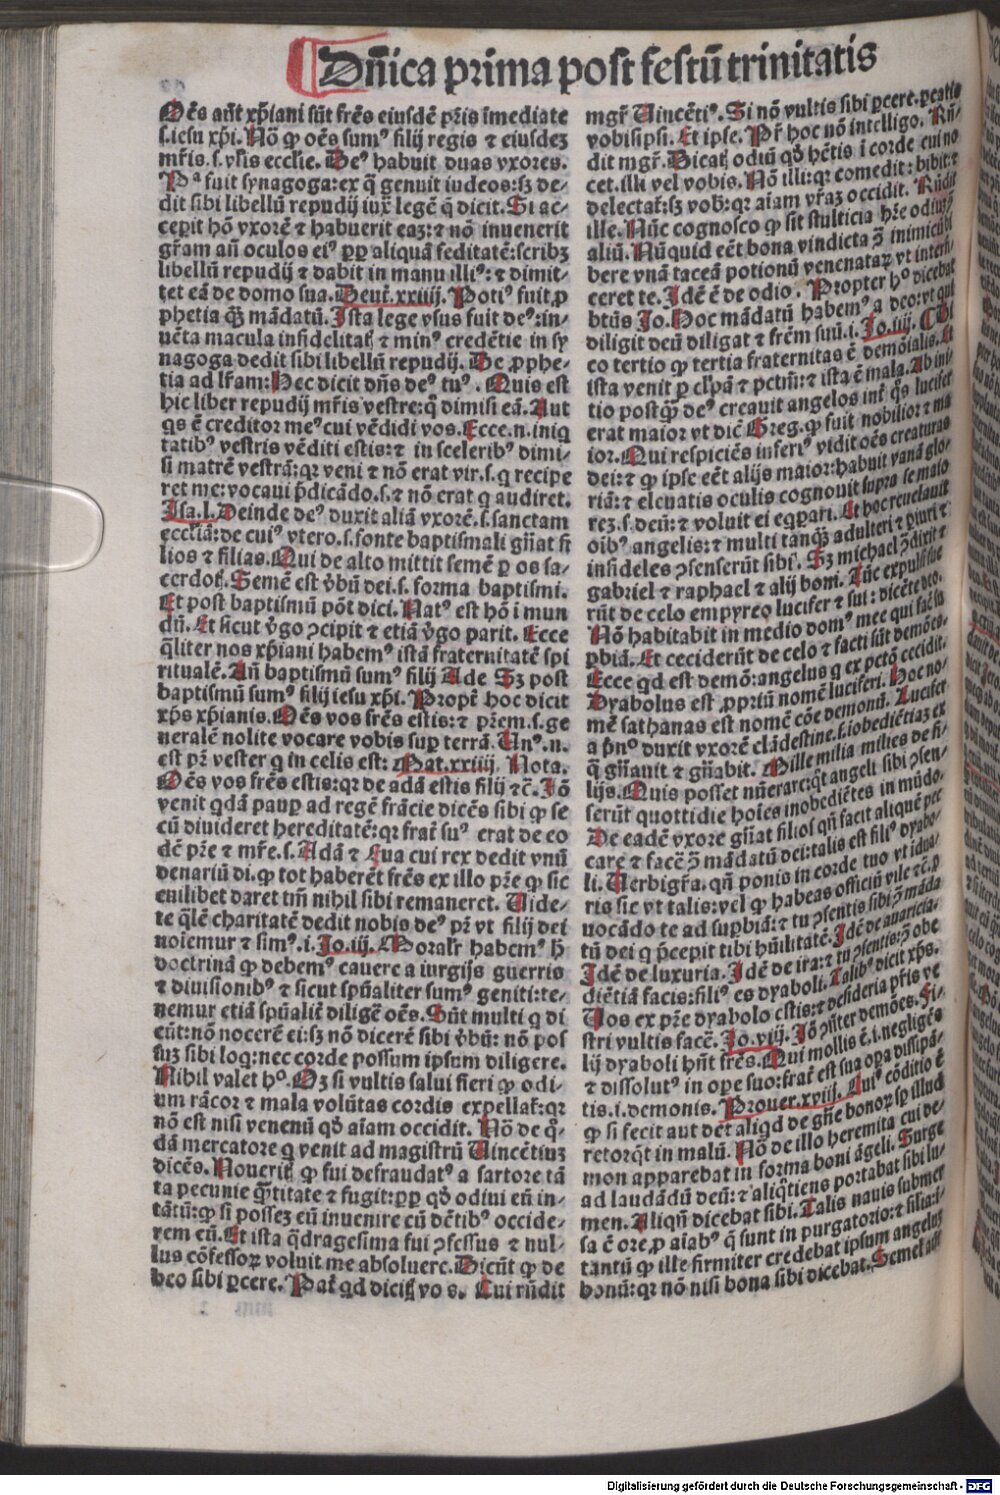 Dn̄ica prima post festū trinitatis
Oēs aūt xp̄iani sūt frēs eiusdē pr̄is īmediate
s.iesu xp̄i. Nō ꝙ oēs sumꝰ filij regis ⁊ eiusdeꝫ
mr̄is.s.vl̓is eccl̓ie. Deꝰ habuit duas vxores.
Pᵃ fuit synagoga:ex q̄ genuit iudeos:sꝫ de⸗
dit sibi libellū repudij iux̄ legē q̄ dicit. Si ac⸗
ceperit hō vxorē ⁊ habuerit eaꝫ:⁊ nō inuenerit
gr̄am an̄ oculos eiꝰ ꝓꝑ aliquā feditatē:scribꝫ
libellū repudij ⁊ dabit in manu illiꝰ:⁊ dimit⸗
tet eā de domo sua. Deut̄.xxiiij. Potiꝰ fuit ꝓ
phetia qꝫ̄ mādatū. Ista lege vsus fuit deꝰ:in⸗
uēta macula infidelitat̄ ⁊ minꝰ credētie in sy
nagoga dedit sibi libellū repudij. De ꝓphe⸗
tia ad lr̄am: Hec dicit dn̄s deꝰ tuꝰ. Quis est
hic liber repudij mr̄is vestre:q̄ dimisi eā. Aut
qs ē creditor meꝰ cui vēdidi vos. Ecce.n.iniq
tatibꝰ vestris vēditi estis:⁊ in sceleribꝰ dimi⸗
si matrē vestrā:qr veni ⁊ nō erat vir.s.q recipe
ret me:vocaui p̄dicādo.s.⁊ nō erat q audiret.
Isa.l. Deinde deꝰ duxit aliā vxorē.s.sanctam
eccl̓iā:de cuiꝰ vtero.s.fonte baptismali gn̄at fi
lios ⁊ filias. Qui de alto mittit semē ꝑ os sa⸗
cerdot̄. Semē est v̓bū dei.s.forma baptismi.
Et post baptismū pōt dici. Natꝰ est hō i mun
dū. Et sicut v̓go ꝯcipit ⁊ etiā v̓go parit. Ecce
qliter nos xp̄iani habemꝰ istā fraternitatē spi
ritualē. An̄ baptismū sumꝰ filij Ade Sꝫ post
baptismū sumꝰ filij iesu xp̄i. Propt̓ hoc dicit
xp̄s xp̄ianis. Oēs vos frēs estis:⁊ pr̄em.s.ge
neralē nolite vocare vobis suꝑ terrā. Unꝰ.n.
est pr̄ vester q in celis est: Mat.xxiiij. Nota.
Oēs vos frēs estis:qr de adā estis filij ⁊c̄. Iō
venit qdā pauꝑ ad regē frācie dicēs sibi ꝙ se
cū diuideret hereditatē:qr frat̓ suꝰ erat de eo
dē pr̄e ⁊ mr̄e.s. Adā ⁊ Eua cui rex dedit vnū
denariū di.ꝙ tot haberēt frēs ex illo pr̄e ꝙ sic
cuilibet daret tm̄ nihil sibi remaneret. Uide⸗
te qlē charitatē dedit nobis deꝰ pr̄ vt filij dei
noiemur ⁊ simꝰ.i. Io.iij. Moralr̄ habemꝰ h̄
doctrinā ꝙ debemꝰ cauere a iurgijs guerris
⁊ diuisionibꝰ ⁊ sicut spūaliter sumꝰ geniti:te⸗
nemur etiā spūalit̓ diligē oēs. Sūt multi q di
cūt:nō nocerē ei:sꝫ nō dicerē sibi v̓bū: nō pos
suꝫ sibi loq:nec corde possum ipsum diligere.
Nihil valet hᵒ. Oꝫ si vultis salui fieri ꝙ odi⸗
um rācor ⁊ mala volūtas cordis expellat̓:qr
nō est nisi venenū qd̓ aīam occidit. Nō de q̄⸗
dā mercatore q venit ad magistrū Uincētiuꝫ
dicēs. Noueritꝭ ꝙ fui defraudatꝰ a sartore tā
ta pecunie q̄titate ⁊ fugit:ꝓꝑ qd̓ odiui eū in⸗
tātū:ꝙ si posseꝫ eū inuenire cū dētibꝰ occide⸗
rem eū. Et ista q̄dragesima fui ꝯfessus ⁊ nul⸗
lus cōfessoꝝ voluit me absoluere. Dicūt ꝙ de
beo sibi ꝑcere. Pat̓ qd dicitꝭ vos. Cui rn̄dit
mgr̄ Uincētiꝰ. Si nō vultis sibi ꝑcere.ꝑcatis
vobisipsi. Et ipse. Pr̄ hoc nō intelligo. Rn̄⸗
dit mgr̄. Dicatꝭ odiū qd̓ hētis i corde cui no
cet.illi vel vobis. Nō illi:qr comedit:bibit:⁊
delectat̓:sꝫ vob̄:qr aīam vr̄aꝫ occidit. Rn̄dit
ille. Nūc cognosco ꝙ sit stulticia hr̄e odiuꝫ ꝯ̄
aliū. Nūquid eēt bona vindicta ꝯ̄ inimicū bi
bere vnā taceā potionū venenataꝝ vt interfi⸗
ceret te. Idē ē de odio. Propter hᵒ dicebat
btūs Io. Hoc mādatū habemꝰ a deo:vt qui
diligit deū diligat ⁊ frēm suū.i. Io.iiij. ¶ Di
co tertio ꝙ tertia fraternitas ē demōialis. Et
ista venit ꝑ cl̓pā ⁊ pctm̄:⁊ ista ē mala. Ab ini⸗
tio postqꝫ̄ deꝰ creauit angelos int̓ q̄s lucifer
erat maior vt dic̄ Greg.ꝙ fuit nobilior ⁊ ma
ior. Qui respiciēs inferiꝰ vidit oēs creaturas
dei:⁊ ꝙ ipse eēt alijs maior:habuit vanā glo⸗
riā:⁊ eleuatis oculis cognouit supra se maio
reꝫ.s.deū:⁊ voluit ei eq̄pari. Et hoc reuelauit
oībꝰ angelis:⁊ multi tanqꝫ̄ adulteri ⁊ ꝑiuri ⁊
infideles ꝯsenserūt sibi. Sꝫ michael ꝯ̄dixit ⁊
gabriel ⁊ raphael ⁊ alij boni. Tūc expulsi fue
rūt de celo empyreo lucifer ⁊ sui:dicēte deo.
Nō habitabit in medio domꝰ mee qui fac̄ su
ꝑbiā. Et ceciderūt de celo ⁊ facti sūt demōes.
Ecce qd est demō:angelus q ex pctō cecidit.
Dyabolus est ꝓpriū nomē luciferi. Hoc no⸗
mē sathanas est nomē cōe demonū. Lucifer
a p̄nᵒ duxit vxorē clādestine.s.iobediētiaꝫ ex
q̄ gn̄auit ⁊ gn̄abit. Mille milia milies de fi⸗
lijs. Quis posset nūerare:qt̓ angeli sibi ꝯsen⸗
serūt quottidie hoīes inobediētes in mūdo.
De eadē vxore gn̄at filios qn̄ facit aliquē pec
care ⁊ facē ꝯ̄ mādatū dei:talis est filiꝰ dyabo⸗
li. Uerbigr̄a.qn̄ ponis in corde tuo vt idua⸗
ris sic vt talis:vel ꝙ habeas officiū vile ⁊c̄.ꝓ
uocādo te ad suꝑbiā:⁊ tu ꝯsentis sibi ꝯ̄ māda
tū dei q p̄cepit tibi hūilitatē. Idē de auaricia:
Idē de luxuria. Idē de ira:⁊ tu ꝯsentis:ꝯ̄ obe
diētiā facis:filiꝰ es dyaboli. Talibꝰ dicit xp̄s.
Uos ex pr̄e dyabolo estis:⁊ desideria pr̄is ve
stri vultis facē. Io.viij. Iō ꝯn̄ter demōes. Fi⸗
lij dyaboli hn̄t frēs. Qui mollis ē.i.negligēs
⁊ dissolutꝰ in oꝑe suo:frat̓ est sua oꝑa dissipā⸗
tis.i.demonis. Prouer.xviij. Cuiꝰ cōditio ē
ꝙ si fecit aut det̓ aliqd de gn̄e bonoꝝ sꝑ illud
retorq̄t in malū. Nō de illo heremita cui de⸗
mon apparebat in forma boni āgeli. Surge
ad laudādū deū:⁊ aliq̄tiens portabat sibi lu⸗
men. Aliqn̄ dicebat sibi. Talis nauis submer
sa ē ore ꝓ aīabꝰ q̄ sunt in purgatorio:⁊ silia:i⸗
tantū ꝙ ille firmiter credebat ipsum angeluꝫ
bonū:qr nō nisi bona sibi dicebat. Semel aūt
Digitalisierung gefördert durch die Deutsche Forschungsgemeinschaft - DFG